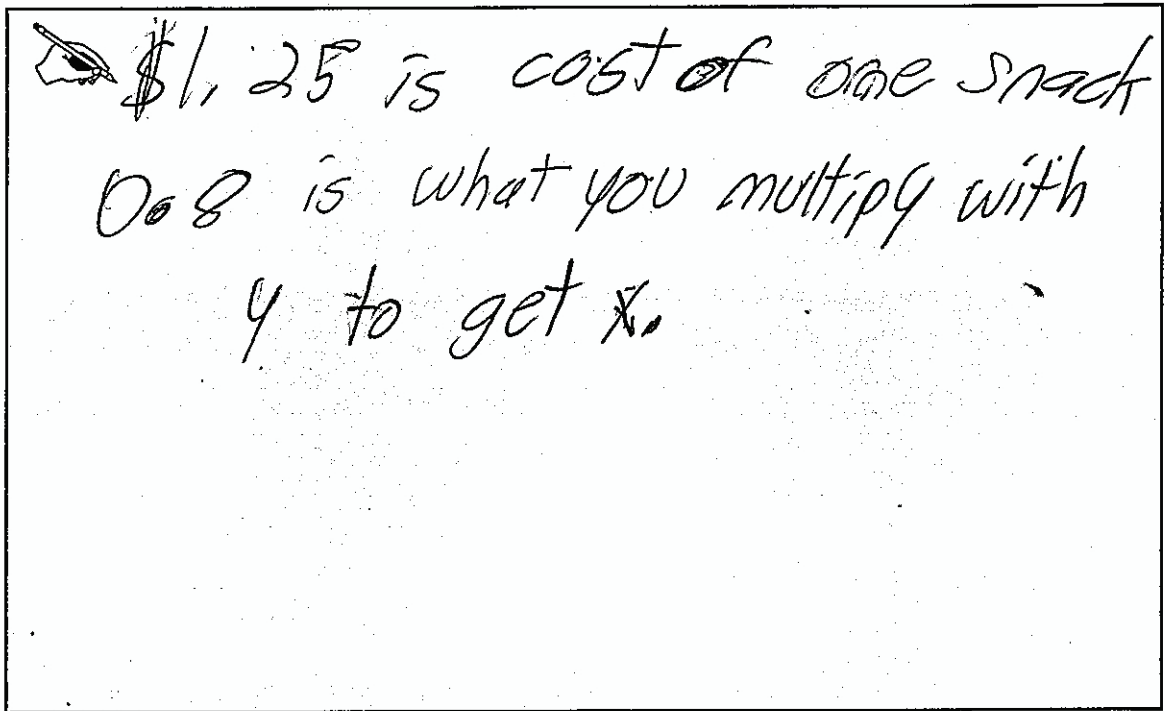 $1.25 is cost of one snack
0.8 is what you multipy with
y to get x.